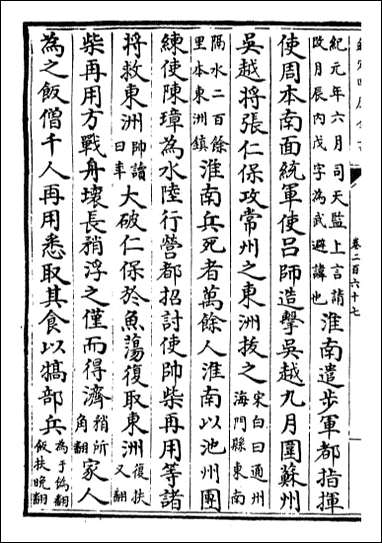 卷二百六十七
紀元年六月司天監上言請
改月辰内戊字為武避諱也
淮南遣步軍都指揮
使周本南面統軍使呂師造擊吳越九月圍蘇州
吳越將張仁保攻常州之東洲拔之
宋白曰通州
海門縣東南
隔水二百餘
里本東洲鎮
淮南兵死者萬餘人淮南以池州團
練使陳璋為水陸行營都招討使帥柴再用等諸
將救東洲
帥讀
曰率
大破仁保於魚蕩復取東洲
復扶
又翻
柴再用方戰舟壞長矟浮之僅而得濟
矟所
角翻
家人
為之飯僧千人再用悉取其食以犒部兵
為于偽翻
飯扶晚翻